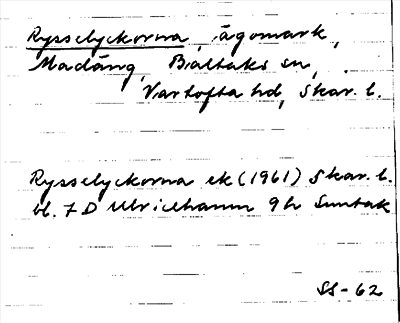 Rysselyckorna, ägomark,
Madäng, Baltaks sn,
Vartofta hd, Skar. l.
Rysselyckorna ek (1961) Skar. l.
bl. 7 D Ulricehamn 9h Suntak
SS-62